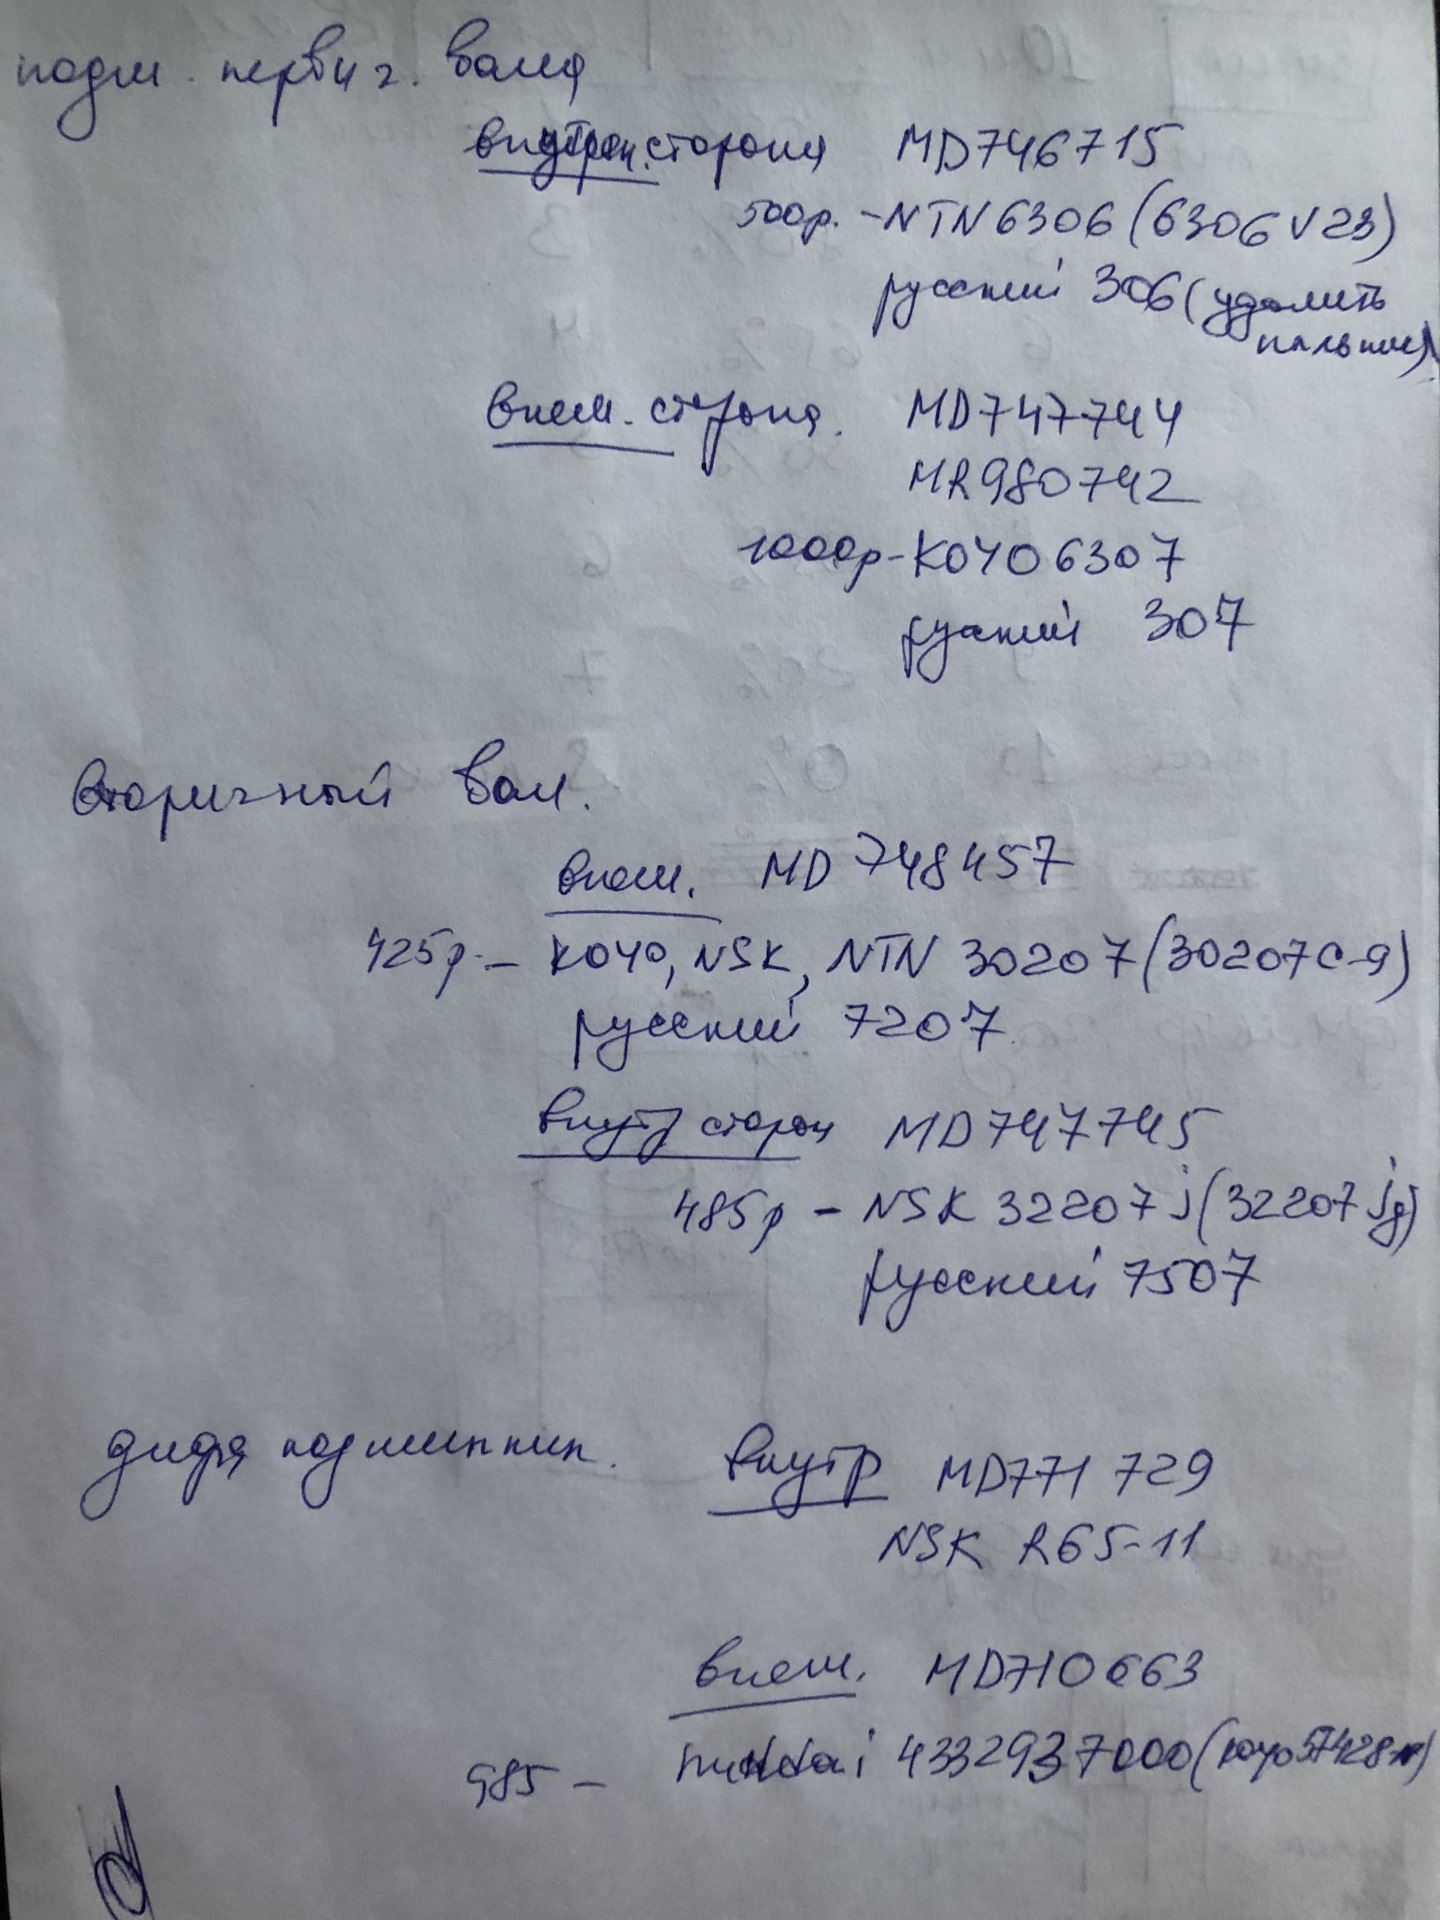 подш. первич. вала
внутрен. сторона MD746715
500р. - NTN 6306 (6306 V23)
русский 306 (удалить
пальник)
внеш. сторона. MD747744
MR980742
1000р - KOYO 6307
руский 307
Вторичный вал.
внеш. MD 748457
425р. - KOYO, NSK, NTN 30207 (30207C-9)
русский 7207
внутр сторон MD747745
485р - NSK 32207 j (32207 jg)
русский 7507
дифра подшипник. внутр MD771 729
NSK R65-11
внеш. MD710663
985 - 4332937000 (koyo 57428)